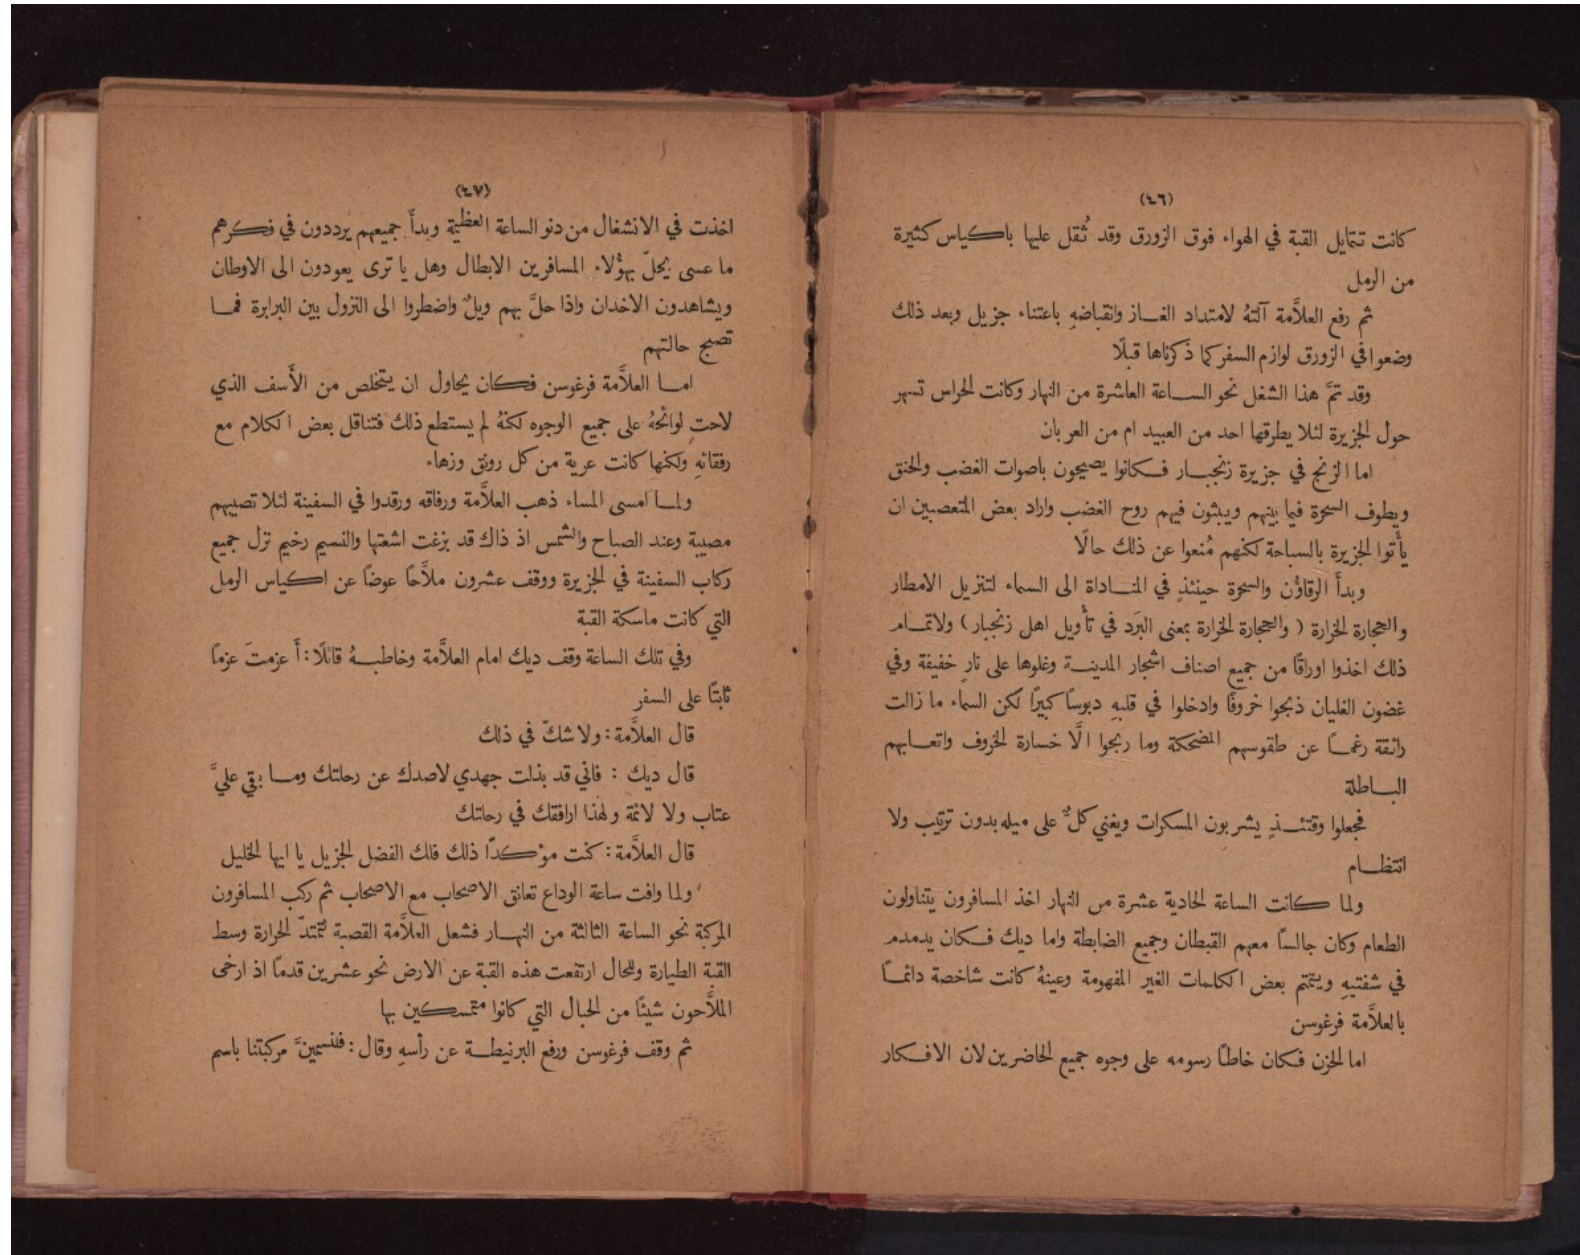 (٤٦)
كانت تتمايل القبة في الهواء فوق الزورق وقد ثُقل عليها باكياس كثيرة
من الرمل
ثم رفع العلاَّمة آلتهُ لامتداد الغاز وانقباضهِ باعتناء جزيل وبعد ذلك
وضعوا في الزورق لوازم السفر كما ذكرناها قبلًا
وقد تمَّ هذا الشغل نحو الساعة العاشرة من النهار وكانت الحراس تسهر
حول الجزيرة لئلا يطرقها احد من العبيد ام من العربان
اما الزنج في جزيرة زنجبار فكانوا يصيحون باصوات الغضب والحنق
ويطوف السحرة فيما بينهم ويبثون فيهم روح الغضب واراد بعض المتعصبين ان
يأتوا الجزيرة بالسباحة لكنهم مُنعوا عن ذلك حالًا
وبدأَ الرقاوُن والسحرة حينئذٍ في المناداة الى السماء لتنزيل الامطار
والحجارة الحرارة ( والحجارة الحرارة بمعنى البَرَد في تأويل اهل زنجبار ) ولاتمام
ذلك اخذوا اوراقًا من جميع اصناف اشجار المدينة وغلوها على نارٍ خفيفة وفي
غضون الغليان ذبحوا خروفًا وادخلوا في قلبهِ دبوسًا كبيرًا لكن السماء ما زالت
رائقة رغمًا عن طقوسهم المضحكة وما ربحوا الَّا خسارة الخروف واتعابهم
الباطلة
فجعلوا وقتئذٍ يشربون المسكرات ويغني كلٌّ على ميله بدون ترتيب ولا
انتظام
ولما كانت الساعة الحادية عشرة من النهار اخذ المسافرون يتناولون
الطعام وكان جالسًا معهم القبطان وجميع الضابطة واما ديك فكان يدمدم
في شفتيهِ ويتمتم بعض الكلمات الغير المفهومة وعينهُ كانت شاخصة دائمًا
بالعلاَّمة فرغوسن
اما الحزن فكان خاطًا رسومه على وجوه جميع الحاضرين لان الافكار
(٤٧)
اخذت في الانشغال من دنو الساعة العظيمة وبدأَ جميعهم يرددون في فكرهم
ما عسى يحلّ بهؤلاء المسافرين الابطال وهل يا ترى يعودون الى الاوطان
ويشاهدون الاخدان واذا حلَّ بهم ويلٌ واضطروا الى النزول بين البرابرة فما
تصبح حالتهم
اما العلاَّمة فرغوسن فكان يحاول ان يتخلص من الأسف الذي
لاحت لوائحهُ على جميع الوجوه لكنهُ لم يستطع ذلك فتناقل بعض الكلام مع
رفقائهِ ولكنها كانت عرية من كل رونق وزهاء
ولما امسى المساء ذهب العلاَّمة ورفاقه ورقدوا في السفينة لئلا تصيبهم
مصيبة وعند الصباح والشمس اذ ذاك قد بزغت اشعتها والنسيم رخيم نزل جميع
ركاب السفينة في الجزيرة ووقف عشرون ملاَّحًا عوضًا عن اكياس الرمل
التي كانت ماسكة القبة
وفي تلك الساعة وقف ديك امام العلاَّمة وخاطبهُ قائلًا : أَ عزمتَ عزمًا
ثابتًا على السفر
قال العلاَّمة : ولا شكّ في ذلك
قال ديك : فاني قد بذلت جهدي لاصدك عن رحلتك وما بقي عليَّ
عتاب ولا لائمة ولهذا ارافقك في رحلتك
قال العلاَّمة : كنت مؤكدًا ذلك فلك الفضل الجزيل يا ايها الخليل
ولما وافت ساعة الوداع تعانق الاصحاب مع الاصحاب ثم ركب المسافرون
المركبة نحو الساعة الثالثة من النهار فشعل العلاَّمة القصبة لتمتدّ الحرارة وسط
القبة الطيارة وللحال ارتفعت هذه القبة عن الارض نحو عشرين قدمًا اذ ارخى
الملاَّحون شيئًا من الحبال التي كانوا متمسكين بها
ثم وقف فرغوسن ورفع البرنيطة عن رأسهِ وقال : فلنسمينَّ مركبتنا باسم